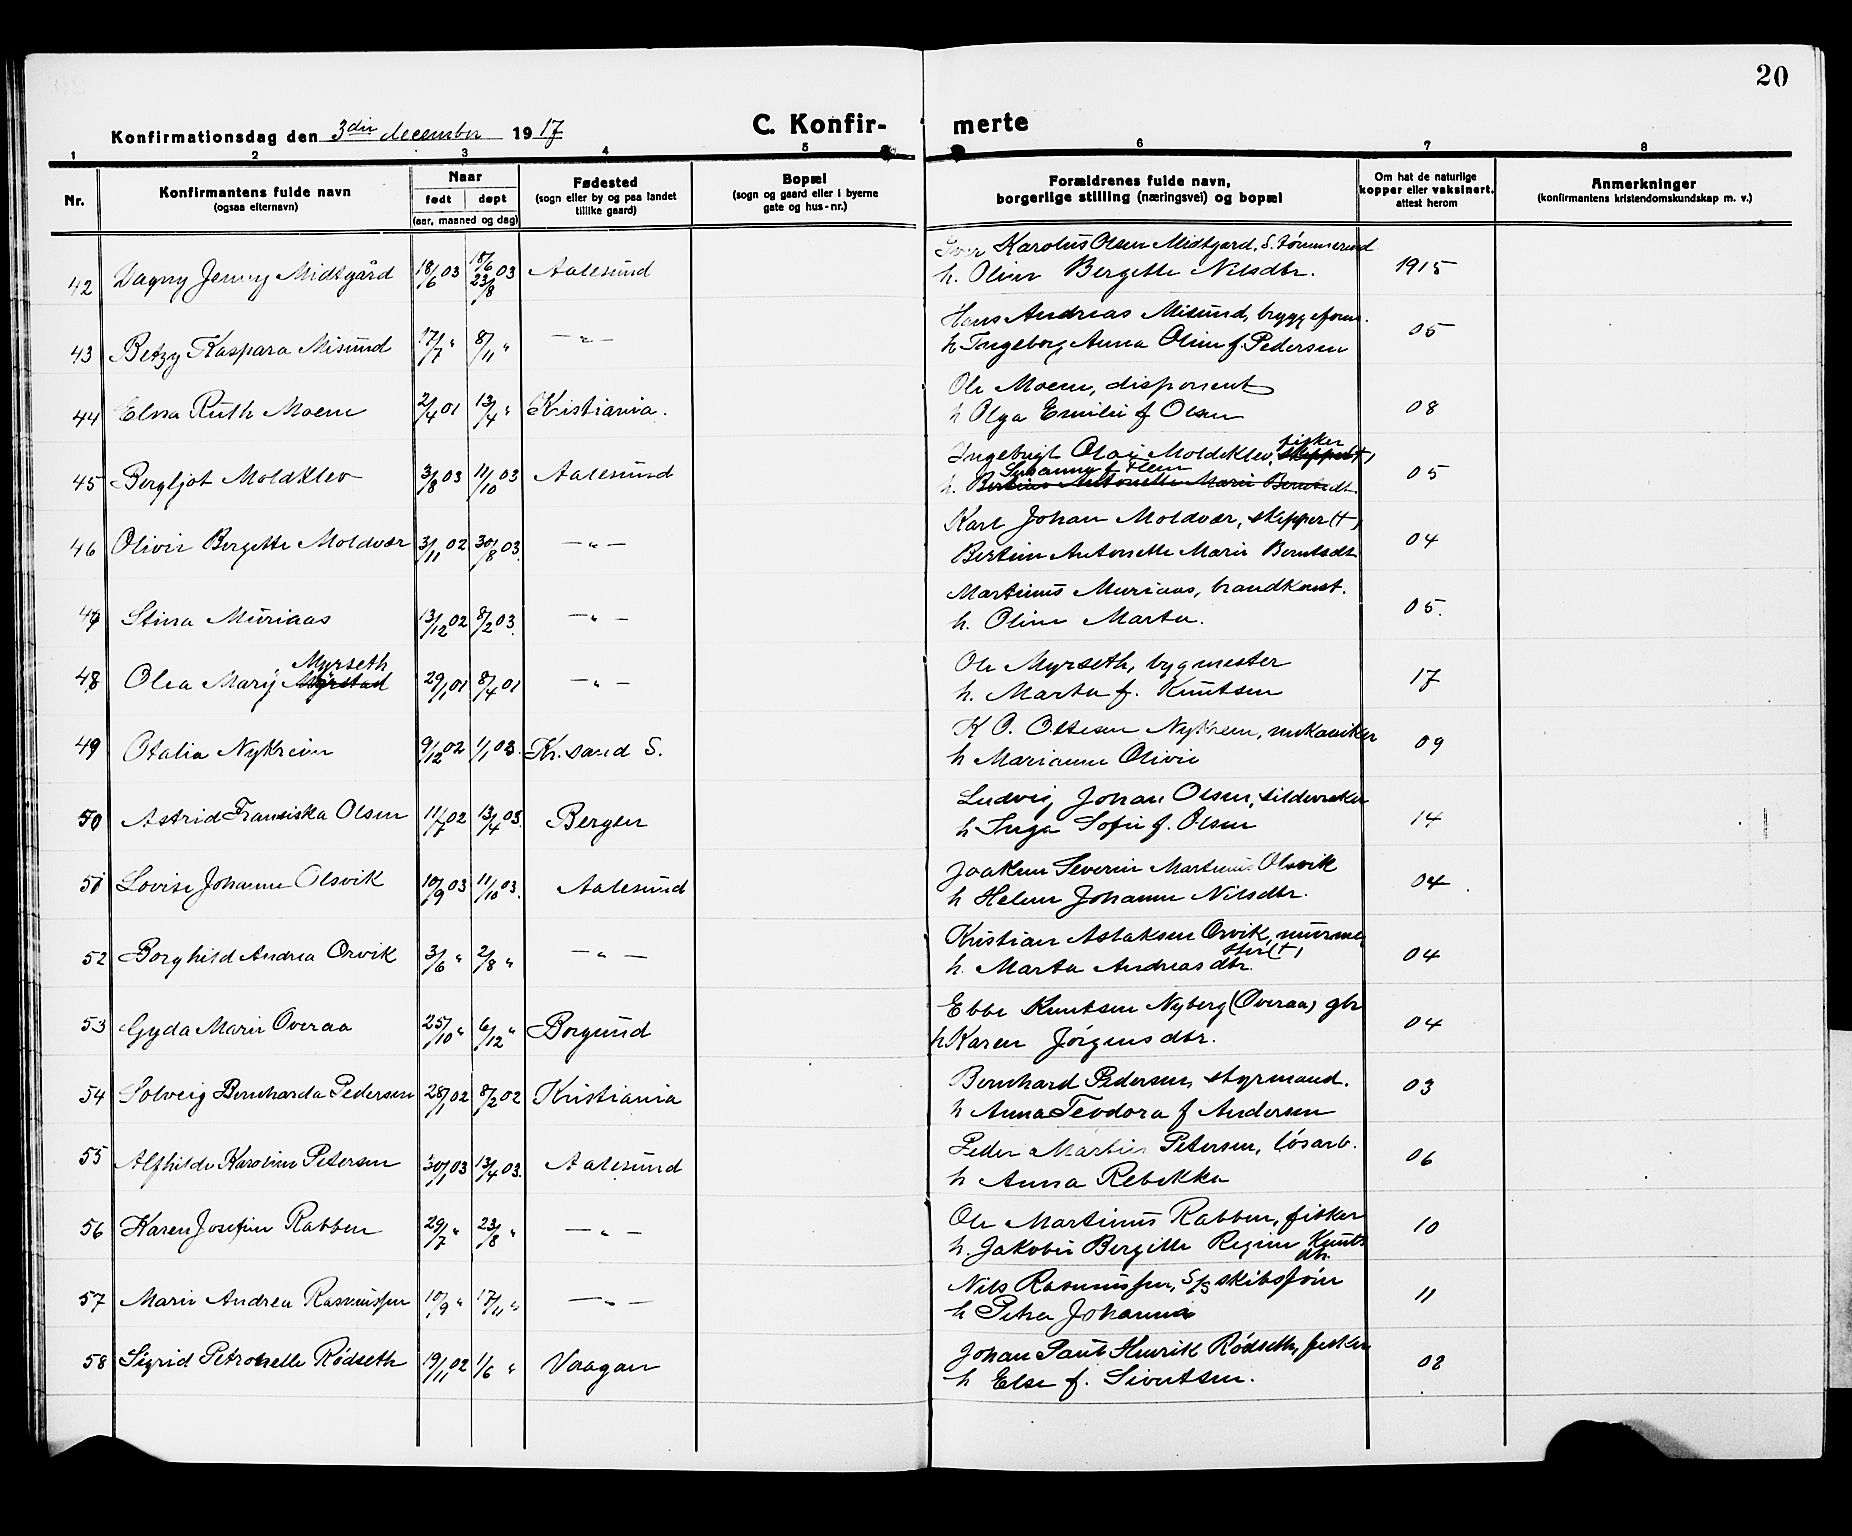 20
Konfirmationsdag den 3die december 1917
C. Konfirmerte
1 2 3 4 5 6 7 8
Nr.
Konfirmantens fulde navn
(ogsaa efternavn)
Naar
født døpt
(aar, maaned og dag)
Fødested
(sogn eller by og paa landet
tillike gaard)
Bopæl
(sogn og gaard eller i byerne
gate og hus-nr.)
Forældrenes fulde navn,
borgerlige stilling (næringsvei) og bopæl
Om hat de naturlige
kopper eller vaksinert.
attest herom
Anmerkninger
(konfirmantens kristendomskundskap m. v.)
42 Dagny Jenny Midtgård 18/6 03 18/6 23/8 03 Aalesund
Iver Karolus Olsen Midtgard, S. tömmermd
h. Oline Bergette Nilsdtr. 1915
43 Betzy Kaspara Misund 17/7 " 8/11 " —"—
Hans Andreas Misund, bryggeform.
h Ingeborg Anna Oline f. Pedersen 05
44 Elna Ruth Moene 2/4 01 13/4 " Kristiania.
Ole Moene, disponent
h Olga Emilie f Olsen 08
45 Bergljot Moldklev 3/8 03 11/10 03 Aalesund
Ingebrigt Olai Moldeklev, fisker skipper(+)
h. Susanna f Flem
Bertine Antonette Marie Berntsdtr. 05
46 Olivie Bergette Moldvær 3/11 02 30/8 03. —"—
Karl Johan Moldvær, skipper (+)
Bertine Antonette Marie Berntsdtr 04
47 Stina Muriaas 13/12 02 8/2 03. —"—
Martinus Muriaas, brandkonst.
h. Oline Marta. 05.
48 Olea Marij Myrstad Myrseth 29/1 01 8/4 01 —"—
Ole Myrseth, bygmester
h. Marta f. Knutsen 17
49 Otalia Nykreim 9/12 02 1/1 03. Kr. sand S.
K O. Oltesen Nykreim, mekaniker
h Marianne Olivie 09
50 Astrid Fransiska Olsen 11/7 02 13/4 03. Bergen
Ludvig Johan Olsen, sildevraker
h Inga Sofie f. Olsen 14
51 Lovise Johanne Olsvik 10/9 03 11/10 03. Aalesund
Joakim Severin Martinus Olsvik
h Helene Johanne Nilsdtr. 04
52 Borghild Andrea Orvik 3/6 " 2/8 " —"—
Kristian Aslaksen Orvik, murmester (+)
h. Marta Andreasdtr. 04
53 Gyda Marie Overaa 25/10 " 6/12 " Borgund
Ebbe Knutsen Nyberg (Overaa) gbr
h Karen Jörgensdtr. 04
54 Solveig Bernharda Pedersen 28/1 02 8/2 02 Kristiania
Bernhard Pedersen, styrmand.
h Anna Teodora f Andersen 03
55 Alfhilde Karoline Petersen 30/1 03 13/4 03. Aalesund
Peder Martin Petersen, lösarb.
h Anna Rebekka 06
56 Karen Josefine Rabben 29/7 " 23/8 " —"—
Ole Martinus Rabben, fisker
h. Jakobie Bergitte Regine Knutsdtr. 10
57 Marie Andrea Rasmussen 10/9 " 17/11 " —"—
Nils Rasmussen, S/S skibsförer
h Petra Johanna 11
58 Sigrid Petronelle Rödseth 19/11 02 1/6 " Vaagan
Johan Paul Henrik Rödseth, fisker
h Else f. Sivertsen. 02